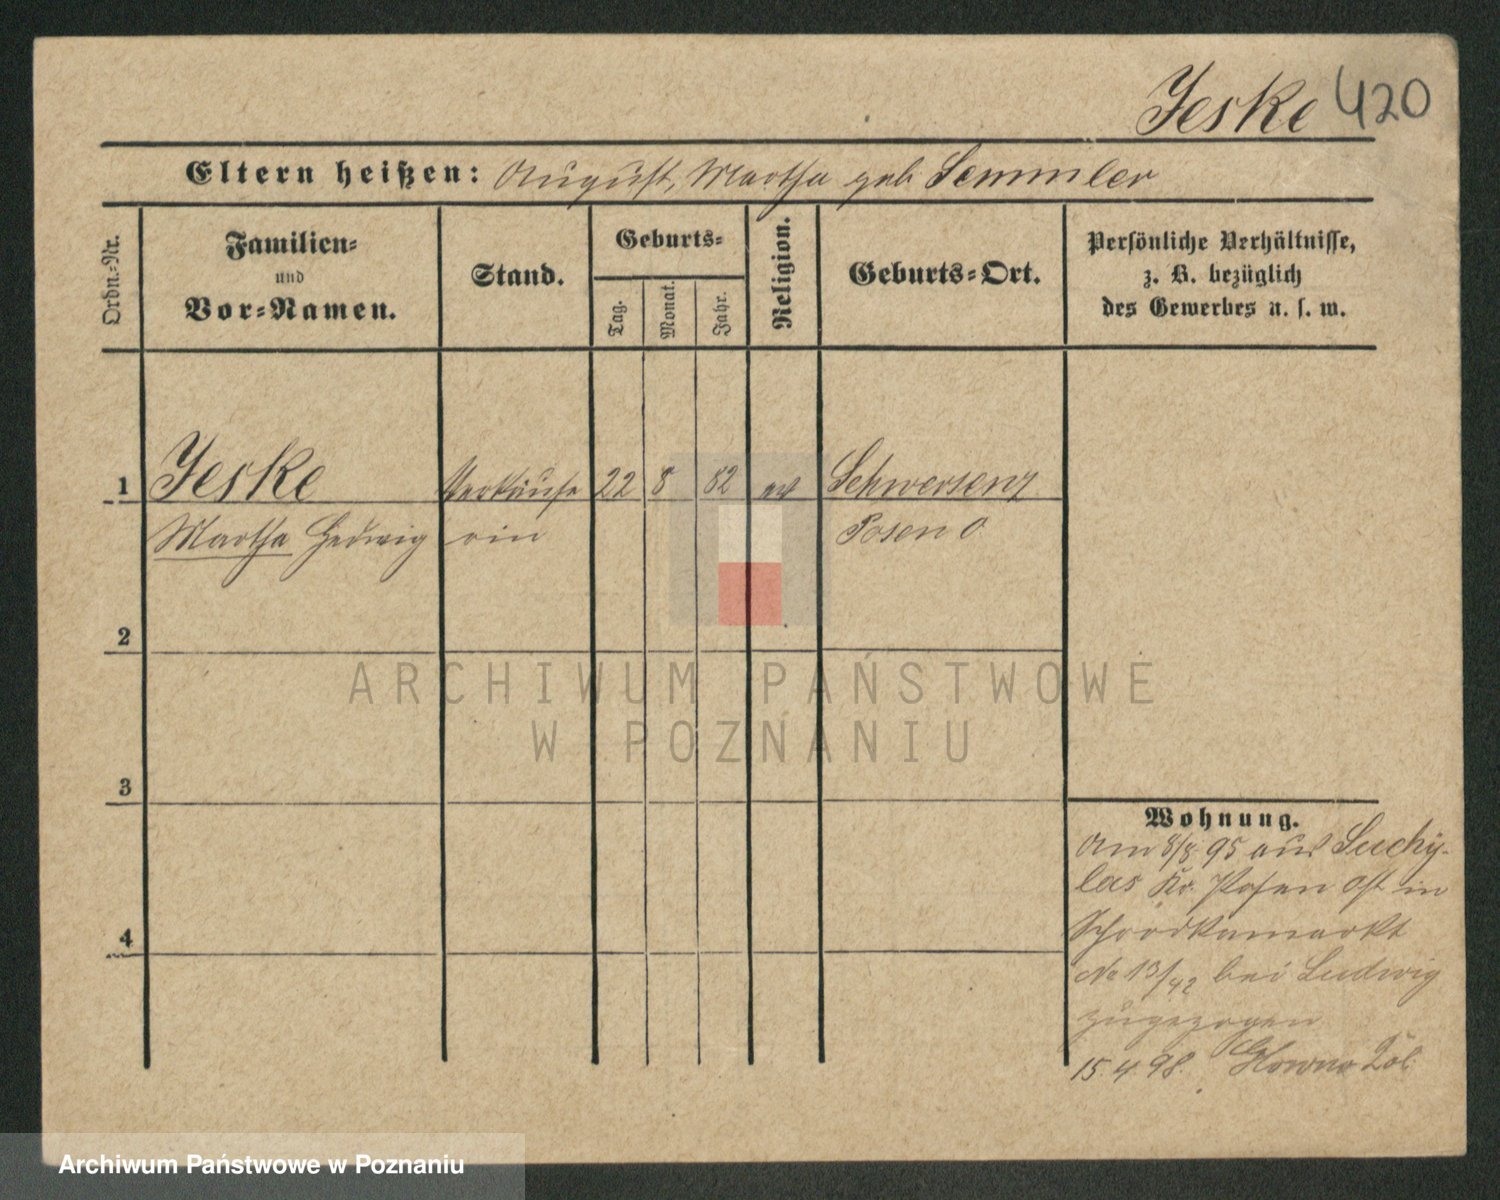 Jeske 420
Eltern heißen: August, Martha geb Semmler
Ordn.=Nr.
Familien=
und
Vor=Namen.
Stand.
Geburts=
Tag.
Monat.
Jahr.
Religion.
Geburts=Ort.
Persönliche Verhältnisse,
z. B. bezüglich
des Gewerbes u. s. w.
1 Jeske Verkäufe 22 8 82 ev Schwersenz
Martha Hedwig rin Posen O
2
3
4
Wohnung.
Am 8/8 95 aus Suchy-
las Kr. Posen Ost in
Schrodkamarkt
No 13/42 bei Ludwig
zugezogen
15.4.98.
ARCHIWUM PAŃSTWOWE
W POZNANIU
Archiwum Państwowe w Poznaniu